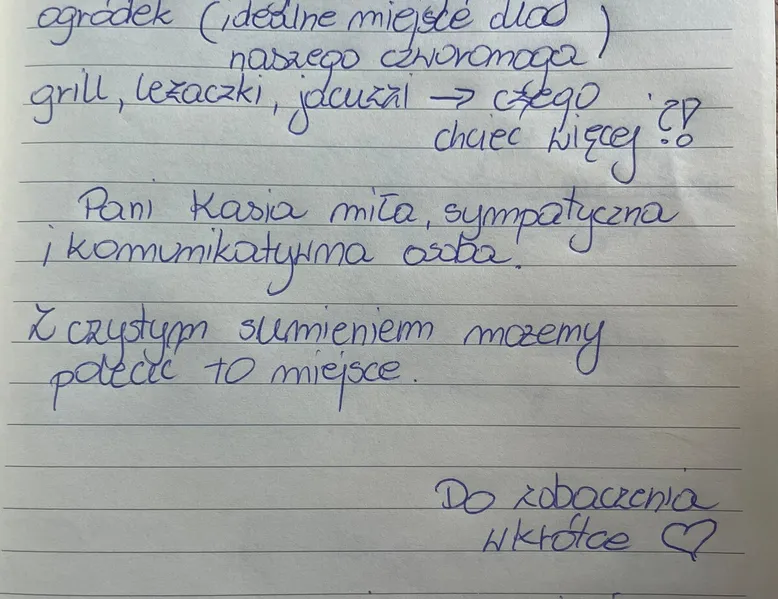 ogródek (idealne miejsce dla
naszego czworonoga)
grill, leżaczki, jacuzzi → czego
chcieć więcej ?!
Pani Kasia miła, sympatyczna
i komunikatywna osoba.
Z czystym sumieniem możemy
polecić to miejsce.
Do zobaczenia
wkrótce ♡